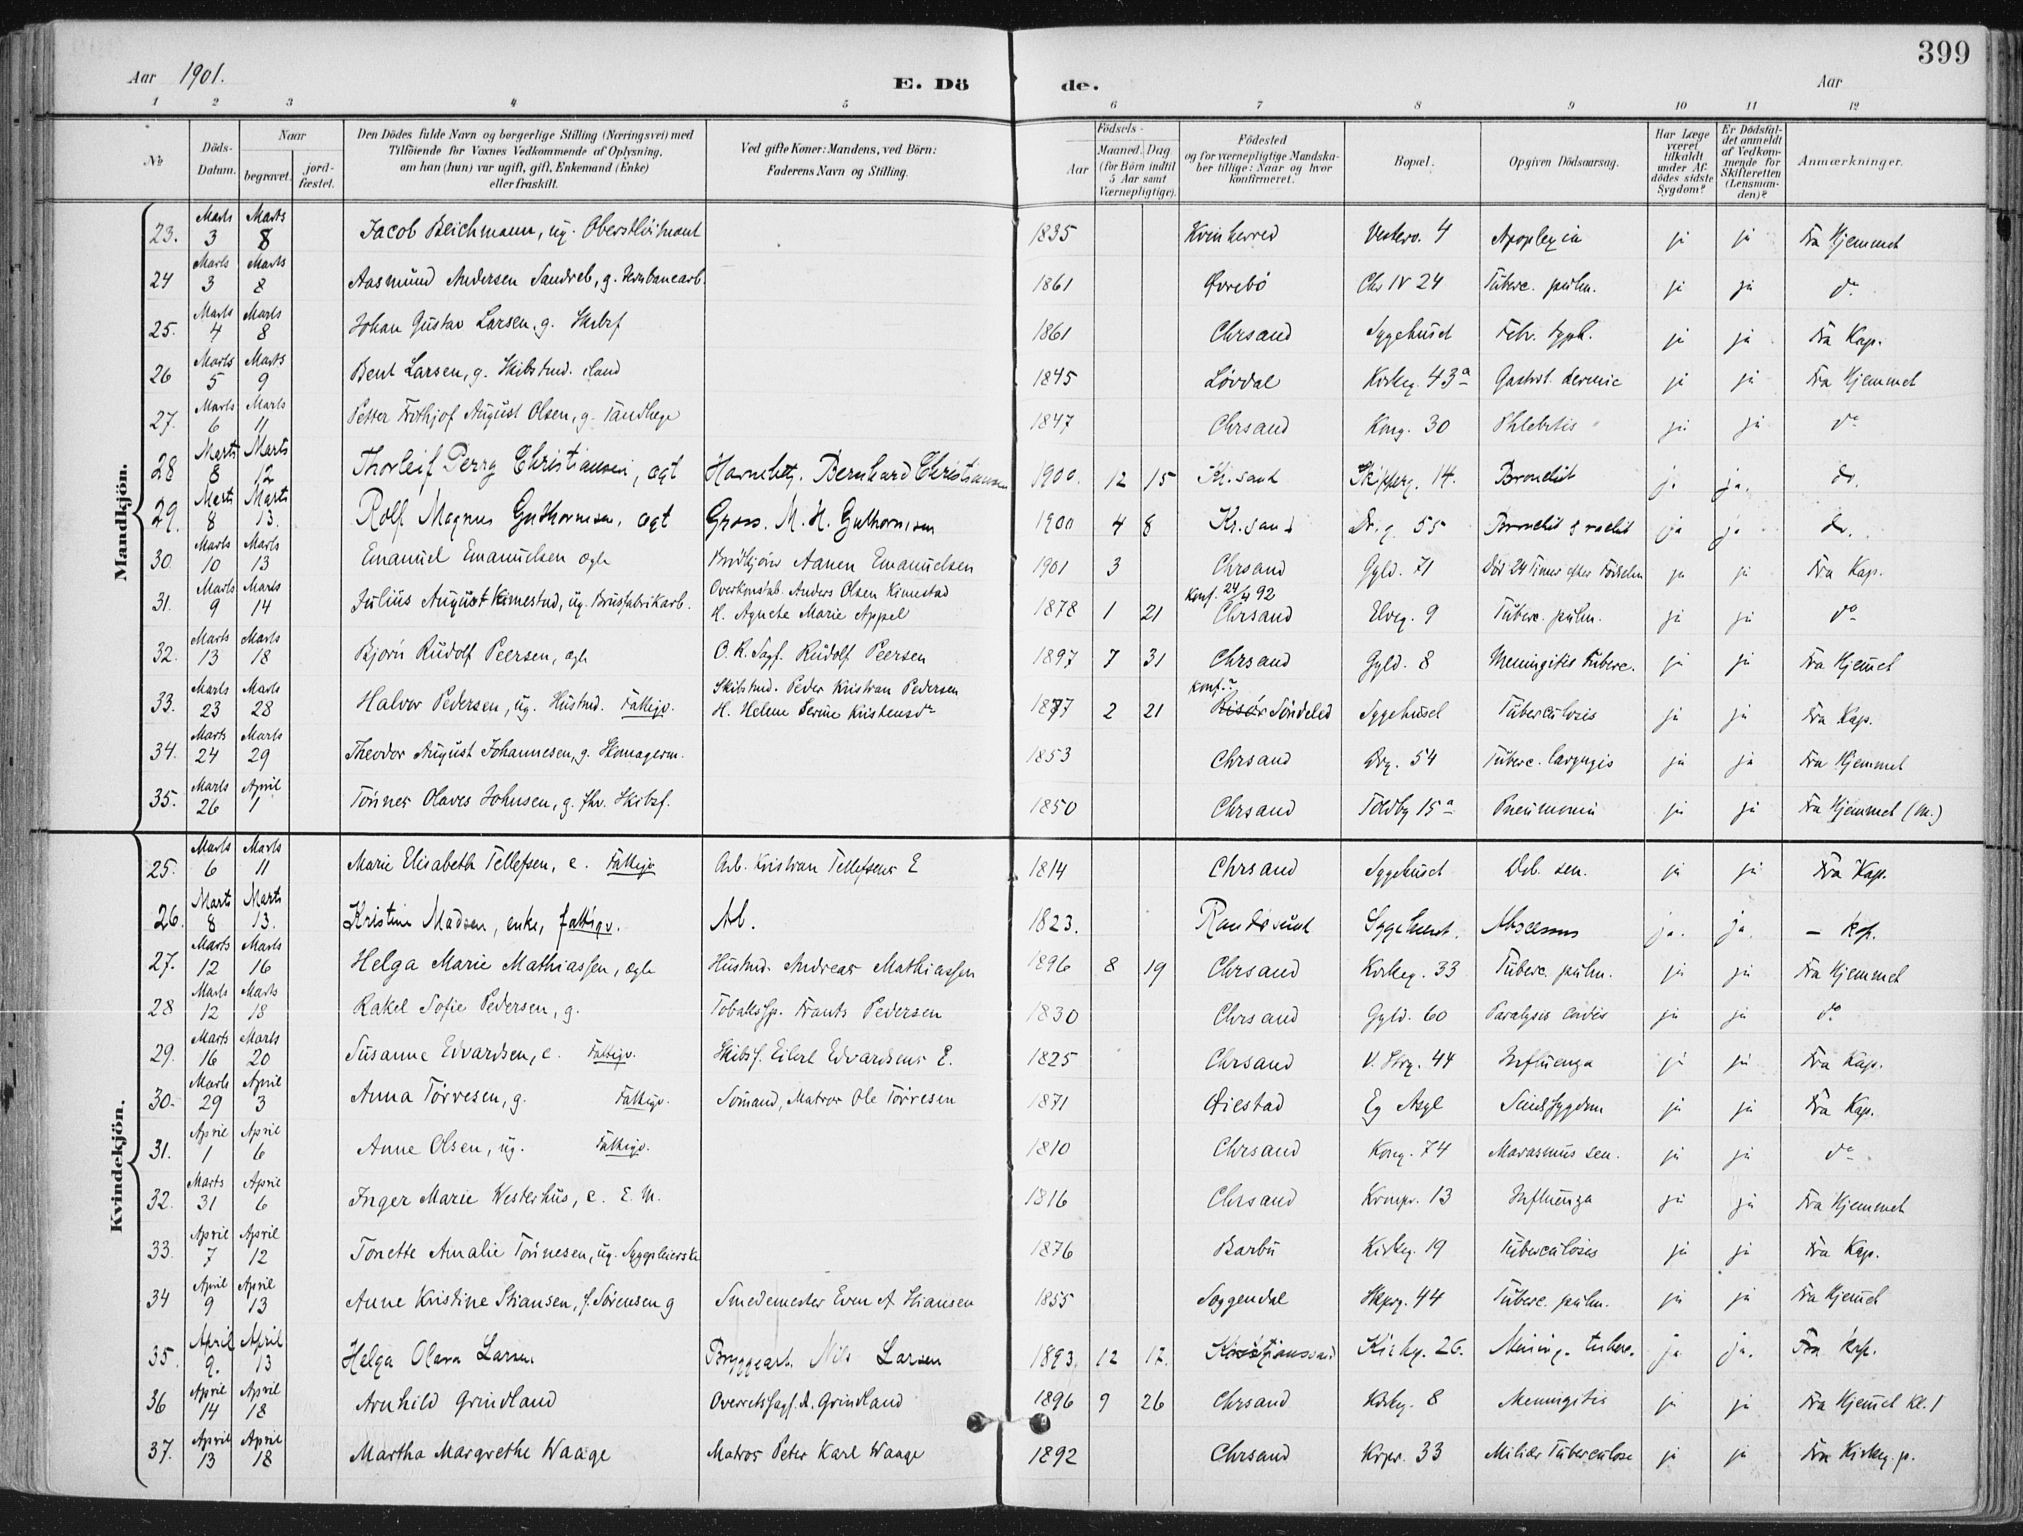 399
Aar 1901. E. Dö de. Aar
1 2 3 4 5 6 7 8 9 10 11 12
No
Döds-Datum.
Naar
begravet.
jord-fæstet.
Den Dödes fulde Navn og borgerlige Stilling (Næringsvei) med
Tilföiende for Voxnes Vedkommende af Oplysning,
om han (hun) var ugift, gift, Enkemand (Enke)
eller fraskilt.
Ved gifte Koner: Mandens, ved Börn:
Faderens Navn og Stilling.
Födsels-
Aar
Maaned. Dag
(for Börn indtil
5 Aar samt
Værnepligtige).
Födested
og for værnepligtige Mandska-
ber tillige: Naar og hvor
konfirmeret.
Bopæl.
Opgiven Dödsaarsag.
Har Læge
været
tilkaldt
under Af-
dödes sidste
Sygdom?
Er Dödsfal-
det anmeldt
af Vedkom-
mende for
Skifteretten
(Lensman-
den)?
Anmærkninger.
Mandkjön.
23. Marts 3 Marts 8 Jacob Beichmann, ug. Oberstløitnant 1835 Kvinherred Vesterv. 4 Apoplexia ja ja Fra Hjemmet
24 Marts 3 Marts 8 Aasmund Andersen Sandreb, g. Jernbanearb. 1861 Øvrebö Chr IV 24 Tuberc. pulm. ja ja do
25. Marts 4 Marts 8 Johan Gustav Larsen, g. Skibsf 1861 Chrsand Sygehuset Febr. typh. ja ja Fra Kap.
26 Marts 5 Marts 9 Bent Larsen, g. Skibstmd. 1845 Lövdal Kirkeg. 43a ja ja Fra Hjemmet
27. Marts 6 Marts 11 Petter Frithjof August Olsen, g. Tandlæge 1847 Chrsand Kong. 30 Phlebitis ja ja do
28 Marts 8 Marts 12 Thorleif Perry Christiansen, ægt Havnebetj. Bernhard Christiansen 1900. 12 15 Kr.sand Skipperg. 14. Bronchit ja ja. do.
29. Marts 8 Marts 13. Rolf Magnus Guthormsen, ægt Gross. M. H. Guthormsen 1900 4 8 Kr.sand Dr. g. 55 Bronchit & rachit ja ja do.
30. Marts 10 Marts 13 Emanuel Emanuelsen ægte Brødkjører Aanen Emanuelsen 1901 3 Chrsand Gyld. 71 Död 24 Timer efter Fødselen ja ja Fra Kap.
31. Marts 9 Marts 14 Julius August Kimestad, ug. Brusfabrikarb. Overkonstab. Anders Olsen Kimestad
H. Agnethe Marie Appel 1878 1 21 Konf. 24/4 92
Chrsand Elveg. 9 Tuberc. pulm. ja ja do
32. Marts 13 Marts 18 Bjorn Rudolf Peersen, ægte O. R. Sagf. Rudolf Peersen 1897 7 31 Chrsand Gyld. 8 Meningitis Tuberc. ja ja Fra Hjemmet
33. Marts 23 Marts 28 Halvor Pedersen, ug. Hustmd. Fattigv. Skibstmd. Peder Kristian Pedersen
H. Helene Serine Kristensdr 1877 2 21 Konf.?
Risør Söndeled Sygehuset Tuberculosis ja ja Fra Kap.
34. Marts 24 Marts 29 Theodor August Johannesen, g. Skomagerm. 1853 Chrsand Drg. 54 Tuberc. laryngis ja ja Fra Hjemmet
35. Marts 26 April 1 Tönnes Olaves Johnsen, g. fhv. Skibsf. 1850 Chrsand Toldbg 15a Pneumonia ja ja Fra Hjemmet (M.)
Kvindekjön.
25. Marts 6 Marts 11 Marie Elisabeth Tellefsen, e. Fattigv Arb. Kristian Tellefsens E 1814 Chrsand Sygehuset Deb. sen. ja ja Fra Kap.
26. Marts 8 Marts 13. Kristine Madsen, enke, fattigv. Arb. 1823. Randøsund Sygehuset. Abscessus ja. ja. – Kap.
27. Marts 12 Marts 16 Helga Marie Mathiassen, ægte Hustmd. Andreas Mathiassen 1896 8 19 Chrsand Kirkeg. 33 Tuberc. pulm. ja ja Fra Hjemmet
28 Marts 12 Marts 18 Rakel Sofie Pedersen, g. Tobakssp. Frants Pedersen 1830 Chrsand Gyld. 60 Paralysis cordis ja ja do
29. Marts 16 Marts 20 Susanne Edvardsen, e. Fattigv. Skibsf. Eilert Edvardsens E. 1825 Chrsand V. Strg. 44 Influenza ja ja Fra Kap.
30. Marts 29 April 3 Anna Törresen, g. Fattigv. Sömand, Matros Ole Törresen 1871 Øiestad Eg Asyl Sindssygdom ja ja Fra Kap.
31. April 1 April 6 Anne Olsen, ug. Fattigv. 1810 Chrsand Kong. 74 Marasmus sen. ja ja do
32. Marts 31 April 6 Inger Marie Westerhus, e. E. M. 1816 Chrsand Kronpr. 13 Influenza ja ja Fra Hjemmet
33. April 7 April 12 Tonette Amalie Tönnesen, ug. Sygepleierske 1876 Barbu Kirkeg. 19 Tuberculosis ja ja Fra Kap.
34 April 9 April 13 Anne Kristine Stiansen, f. Sörensen g Smedemester Even A. Stiansen 1855 Soggendal Skprg. 44 Tuberc. pulm. ja ja Fra Hjemmet
35. April 9. April 13 Helga Olava Larsen Bryggearb. Nils Larsen 1893. 12 17. Kristianssand Kirkeg. 26. Mening. tuberc. ja ja. Fra Kap.
36 April 14 April 18 Arnhild Grindland Overretssagf. A. Grindland 1896 9 26 Chrsand Kirkeg. 8 Meningitis ja ja Fra Hjemmet Kl. 1
37. April 13 April 18 Martha Margrethe Waage Matros Peter Karl Waage 1892 Chrsand Krpr. 33 Miliær Tuberculose ja ja Fra Kirkeg. p.